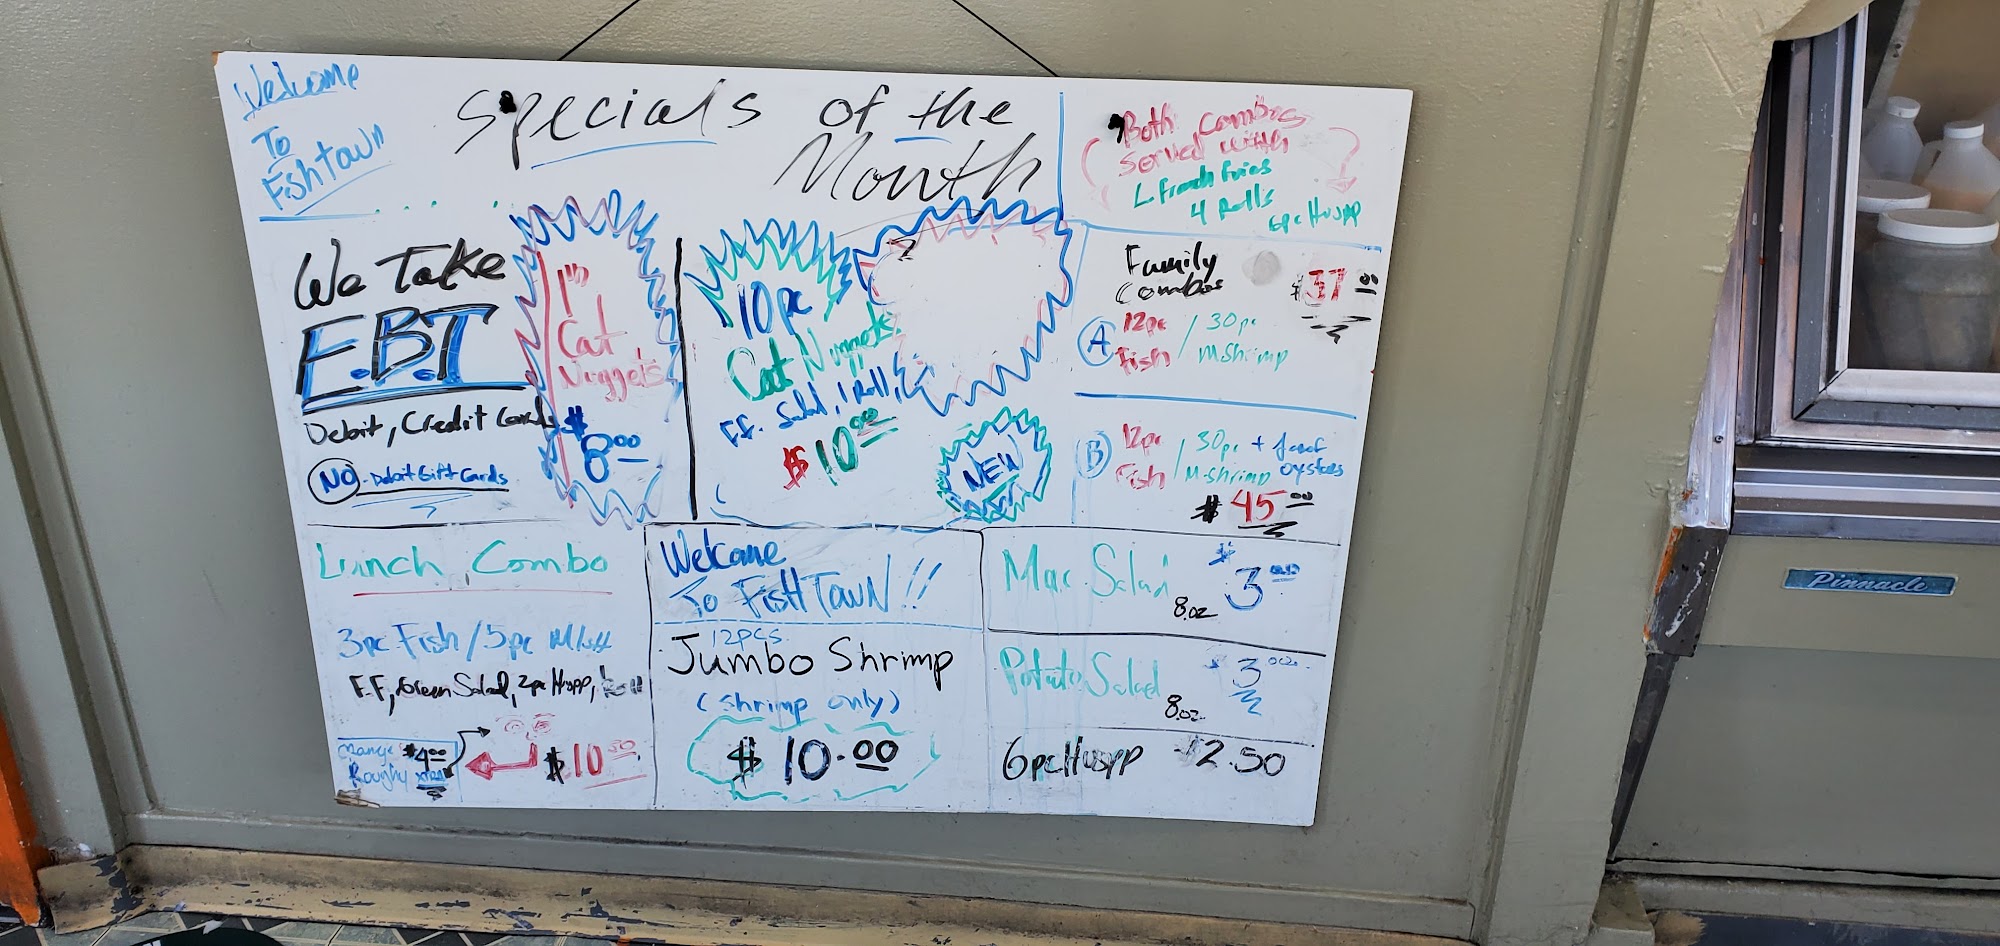 Welcome
To
Fishtown
Specials of the
Month
Both Combos
Served with
L french fries
4 Rolls
6pc Hupp
We Take
E.B.T
Debit, Credit Cards
NO Debit Gift Cards
1lb
Cat
Nuggets
$
8.00
10pc
Cat Nuggets
F.F. Salad, 1 Roll,
$10.00
NEW
Family
Combos
$37.00
A
12pc / 30pc
Fish / M Shrimp
B
12pc / 30pc +
Fish / M-shrimp oysters
$45.00
Lunch Combo
3pc Fish / 5pc
F.F, Green Salad, 2pc Hupp, Roll
Orange $4.00
Roughy xtra
$10.50
Welcome
To FisHTowN!!
12pcs
Jumbo Shrimp
(shrimp only)
$10.00
Mac Salad
8.oz
$3.00
Potato Salad
8.oz
$3.00
6pc Hupp $2.50
Pinnacle